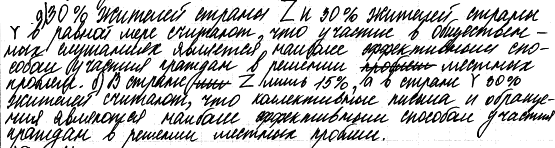 а) 30% жителей страны Z и 30% жителей страны
Y в равной мере считают, что участие в обществен-
ных слушаниях является наиболее эффективным спо-
собом участия граждан в решении местных
проблем. б) В стране Z лишь 15%, а в стране Y 30%
жителей считают, что коллективные письма и обраще-
ния являются наиболее эффективным способом участия
граждан в решении местных проблем.